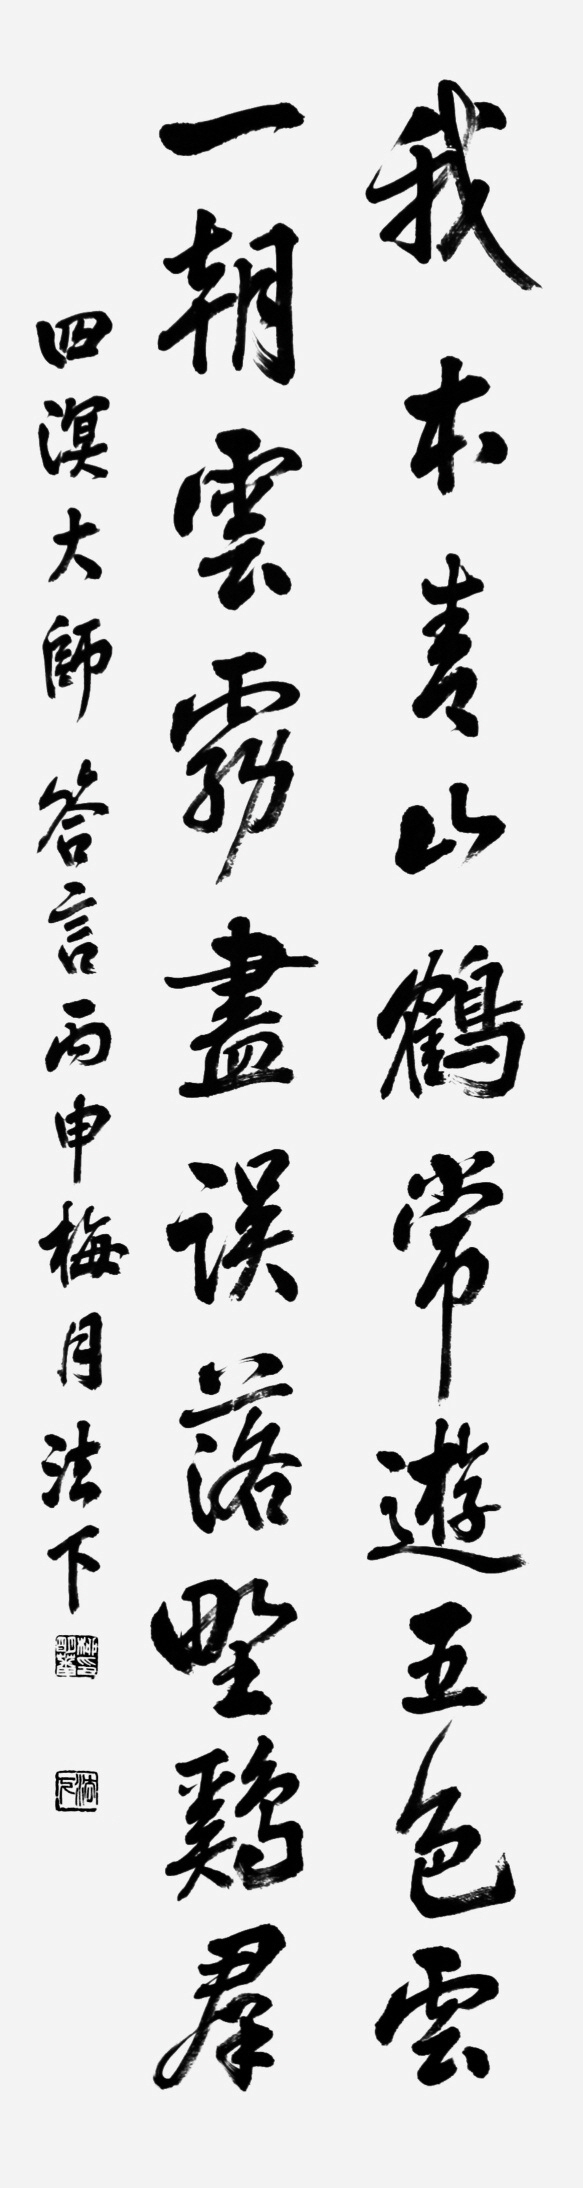 我本青山鶴常遊五色雲
一朝雲霧盡誤落野鷄群
四溟大師 答言丙申梅月法下